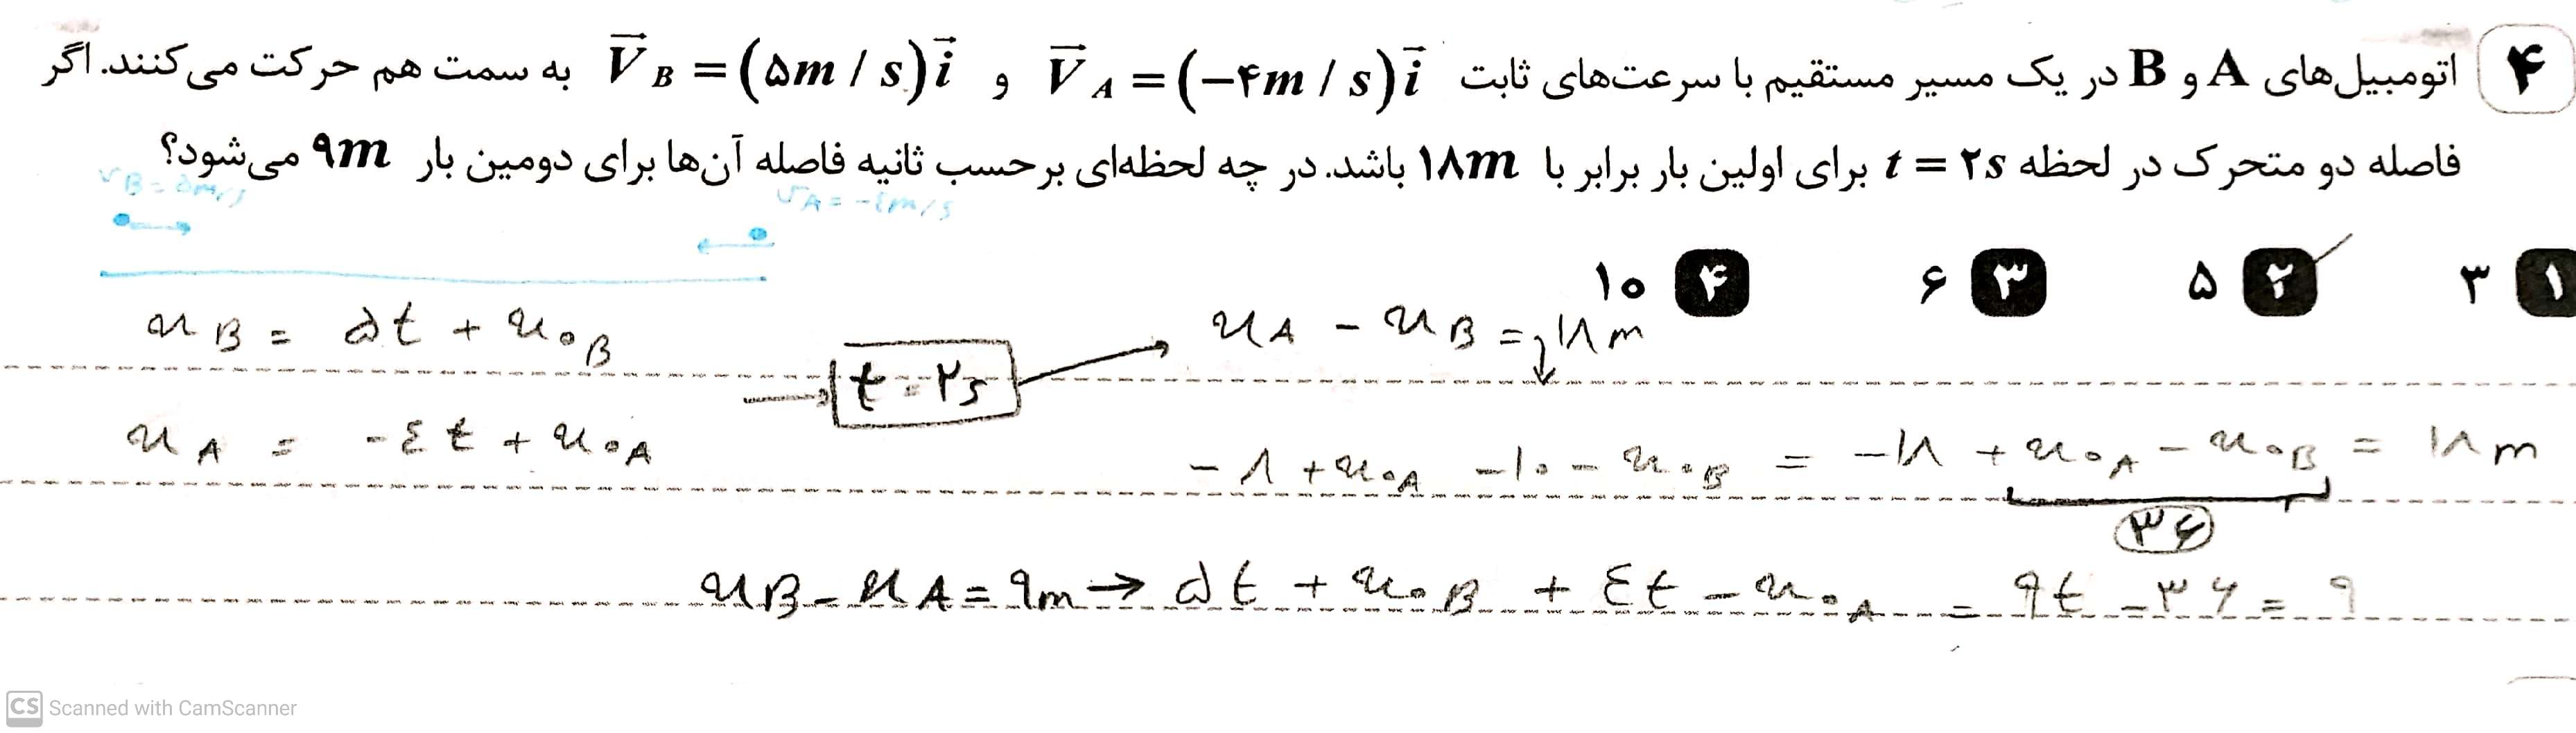 ۴ اتومبیل‌های A و B در یک مسیر مستقیم با سرعت‌های ثابت V⃗_A = (−۴m / s) i⃗ و V⃗_B = (۵m / s) i⃗ به سمت هم حرکت می‌کنند. اگر
فاصله دو متحرک در لحظه t = ۲s برای اولین بار برابر با ۱۸m باشد. در چه لحظه‌ای برحسب ثانیه فاصله آن‌ها برای دومین بار ۹m می‌شود؟
V_B = ۵m/s
V_A = -٤m/s
۱ ۳ ۲ ۵ ۳ ۶ ۴ ۱۰
x_B = ۵t + x_{0B}
x_A - x_B = ۱۸m
t = ۲s
x_A = -٤t + x_{0A}
-۸ + x_{0A} - ۱۰ - x_{0B} = -۱۸ + x_{0A} - x_{0B} = ۱۸m
۳۶
x_B - x_A = ۹m → ۵t + x_{0B} + ٤t - x_{0A} = ۹t - ۳۶ = ۹
CS Scanned with CamScanner